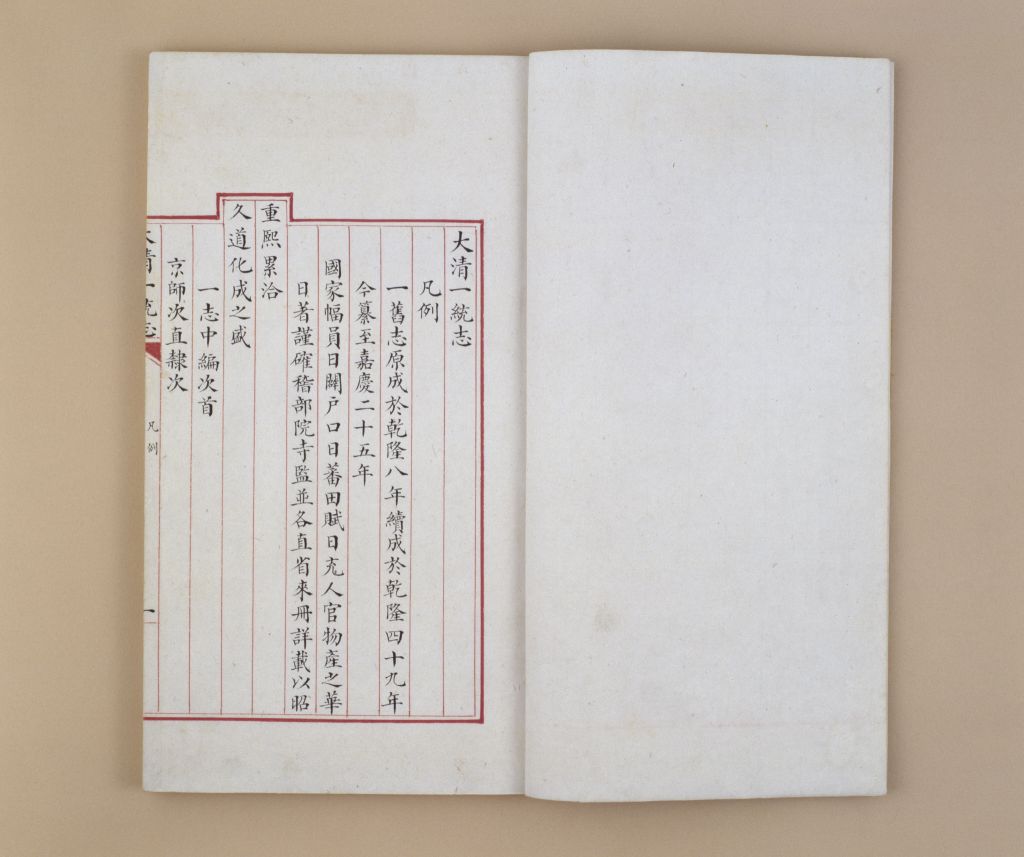 大清一統志
凡例
一舊志原成於乾隆八年續成於乾隆四十九年
今纂至嘉慶二十五年
國家幅員日闢戶口日蕃田賦日充人官物產之華
日著謹確稽部院寺監並各直省來冊詳載以昭
重熙累洽
久道化成之盛
一志中編次首
京師次直隸次
大清一統志
凡例
一